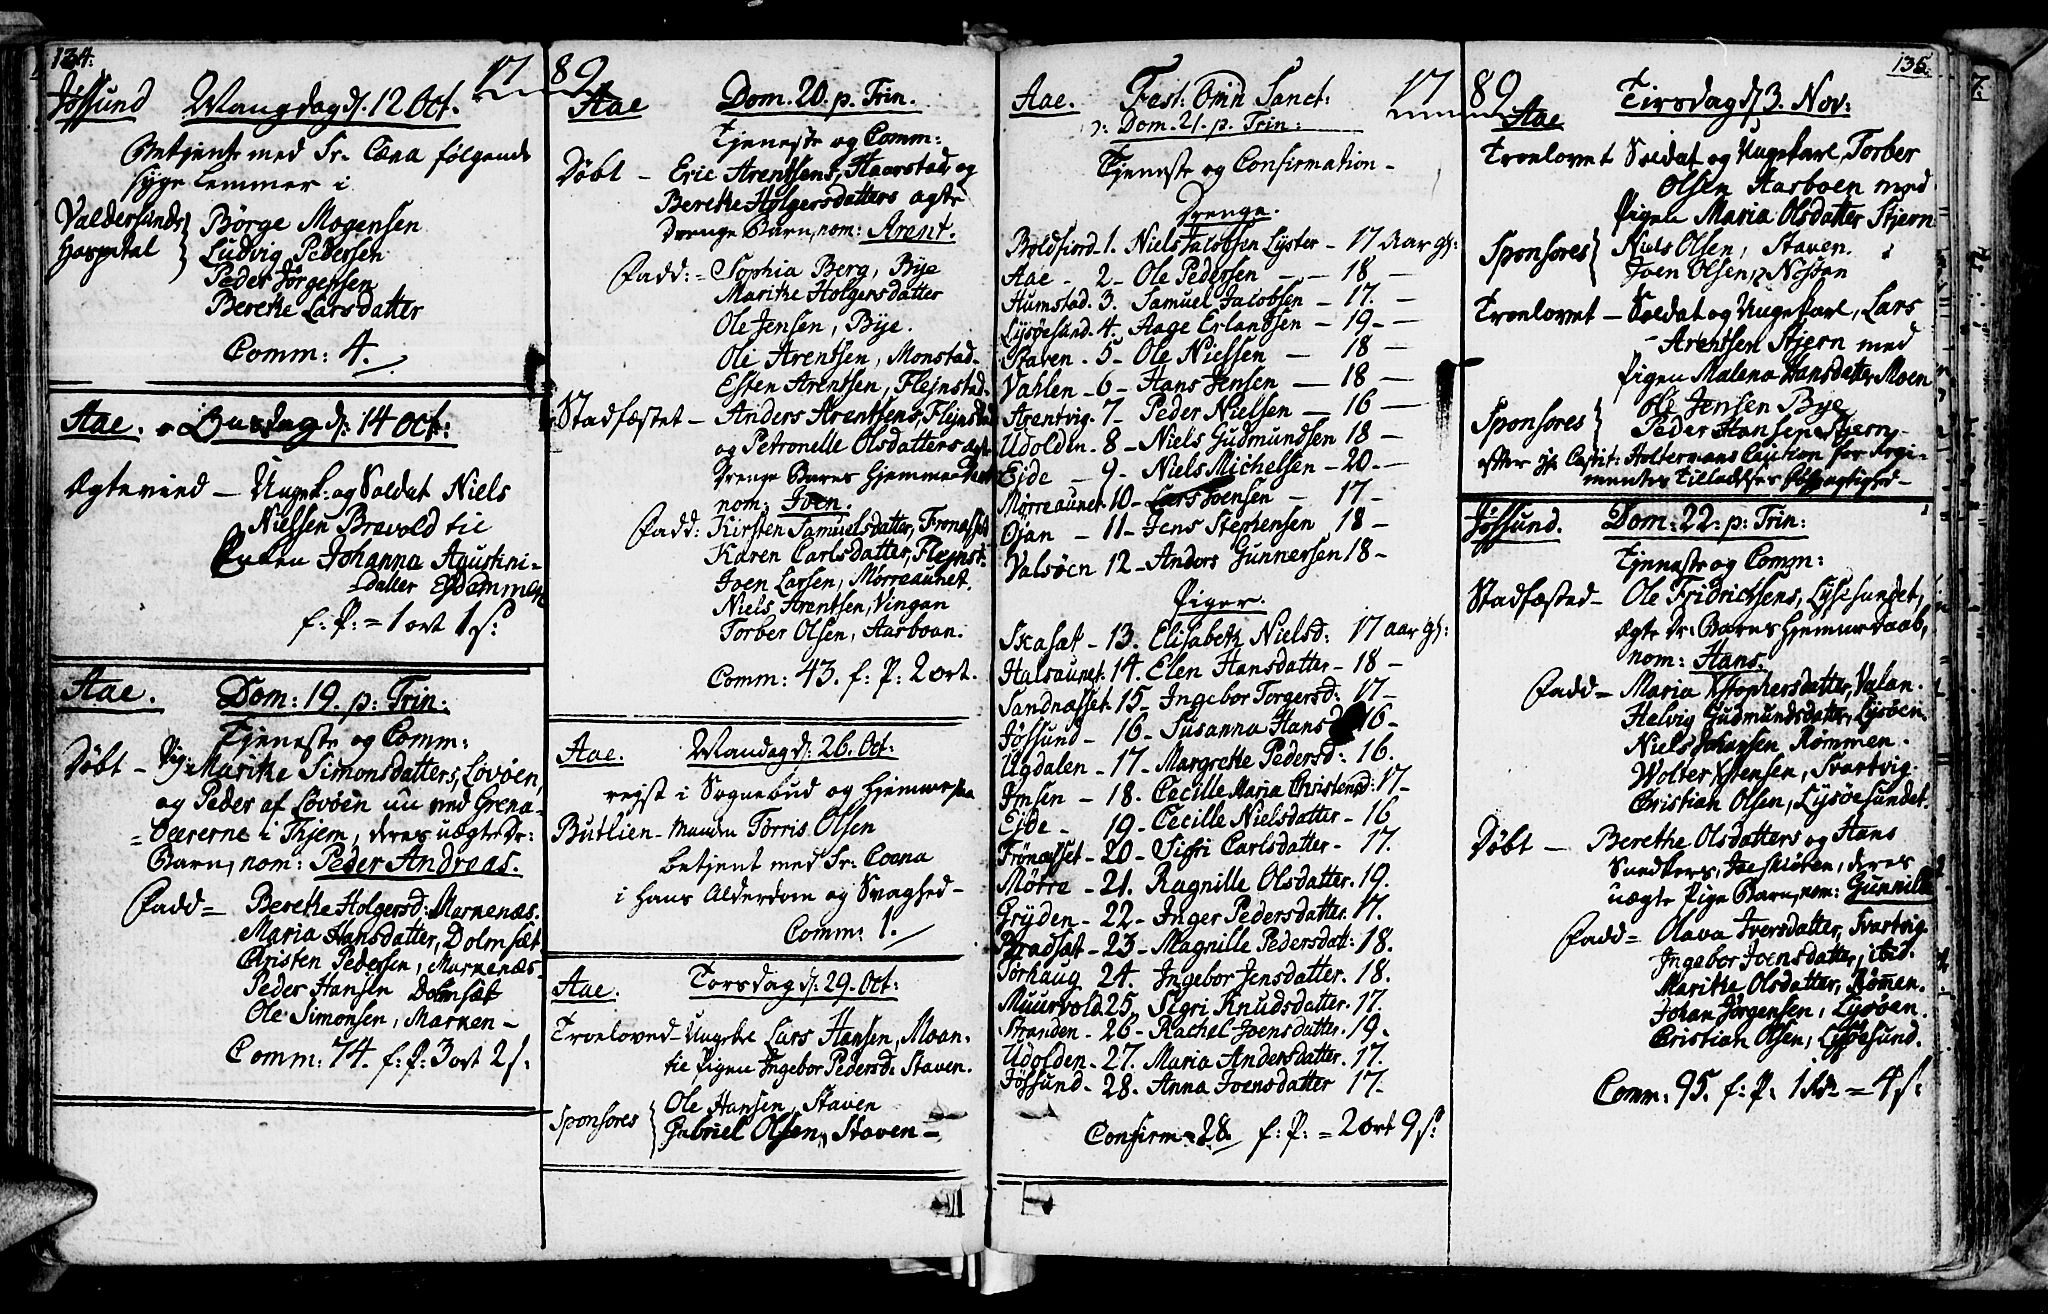 134.
1789
Jössund Mandag d: 12 Oct.
Betjent med Sr. Cæna følgende
syge Lemmer i
Valdersunds Hospital } Börge Mogensen
Ludvig Pedersen
Peder Jörgensen
Berethe Larsdatter
Comm: 4.
Aae. Onsdag d: 14 Oct:
Ægtevied – Ungk: og Soldat Niels
Nielsen Brevold til
Enken Johanna Agustini-
datter
f: P: = 1 ort 1 s:
Aae. Dom: 19. p: Trin:
Tjeneste og Comm:
Döbt – Pig: Marithe Simonsdatters, Lovöen,
og Peder af Lovöen nu ved Grena-
=deererne i Thjem, deres uægte Dr:
Barn, nom: Peder Andreas.
Fadd = Berethe Holgersd: Marnenæs.
Maria Hansdatter, Dolmsæt
Christen Pedersen, Marnenæs-
Peder Hansen Dolmsæt
Ole Simonsen, Marnen –
Comm: 74. f: P: 3 ort 2 s:
Aae Dom. 20. p. Trin.
Tjeneste og Comm:
Döbt – Eric Arentsens, Haarstad og
Berethe Holgersdatters ægte
Drenge Barn, nom: Arent.
Fadd: = Sophia Berg, Bÿe
Marithe Holgersdatter
Ole Jensen, Bÿe.
Ole Arentsen, Monstad-
Esten Arentsen, Flejnstad.
Stadfæstet – Anders Arentsens, Flejnstad
og Petronelle Olsdatters ægte
Drenge Barns Hjemme Daab
nom: Joen.
Fadd: Kirsten Samuelsdatter, Frönæsset
Karen Carlsdatter, Flejnst:
Joen Larsen, Mörreaunet.
Niels Arentsen, Vingan
Torber Olsen, Aasboan.
Comm: 43. f: P: 2 ort.
Aae. Mandag d: 26. Oct:
rejst i Sognebud og Hjemmesøg
Butlien – Manden Torris Olsen
betjent med Sr: Coena
i hans Alderdom og Svaghed –
Comm: 1.
Aae. Torsdag d: 29. Oct:
Troeloved – Ungk: Lars Hansen, Moan.
til Pigen Ingebor Pedersd: Staven.
Sponsores { Ole Hansen, Staven
Gabriel Olsen, Staven –
135.
1789
Aae. Fest: Omn Sanct:
ɔ: Dom. 21. p. Trin:
Tjeneste og Confirmation –
Drenge.
Boldfiord – 1. Niels Jacobsen Lÿster – 17 Aar gl:
Aae – 2 – Ole Pedersen – – 18 –
Humstad. 3. Samuel Jacobsen – 17. –
Lÿsöesund. 4. Aage Erlandsen – 19 – –
Staven – 5 – Ole Nielsen – 18 –
Vahlen – 6 – Hans Jensen – 18 –
Arentvig – 7 – Peder Nielsen – 16 –
Udolden – 8 – Niels Gudmundsen 18 –
Ejde – 9 – Niels Michelsen – 20. –
Mörreaunet 10 – Lars Joensen – 17 –
Öjan – 11 – Jens Stephensen 18 –
Valsöen 12 – Anders Gunnersen 18 –
Piger.
Skasæt – 13. Elisabeth Nielsd: 17 aar gl:
Halsaunet. 14. Elen Hansdatter – 18 –
Sandnæsset 15 – Ingebor Torgersd: 17 –
Jössund – 16 – Susanna Hansd 16 –
Ugdalen – 17 – Margrethe Pedersd: 16.
Imsen – 18. Cecille Maria Christensd: 17 –
Ejde – 19 – Cecille Nielsdatter – 16
Frönæsset – 20 – Sigri Carlsdatter – 17.
Mörre – 21. Ragnille Olsdatter. 19.
Grÿden – 22 – Inger Pedersdatter. 17.
Bradsæt – 23 – Magnille Pedersdatt: 18.
Törhaug 24. Ingebor Jensdatter. 18.
Muurvold 25. Sigri Knudsdatter. 17.
Stranden – 26 – Rachel Joensdatter. 19.
Udolden – 27. Maria Andersdatter. 17.
Jössund – 28. Anna Joensdatter 17.
Confirm = 28. f: P: = 2 ort 9 s:
Aae Tirsdag d 3. Nov:
Troelovet Soldat og Ungekarl, Torber
Olsen Aasboen med
Pigen Maria Olsdatter Stjern
Sponsores } Niels Olsen, Staven.
Joen Olsen, Nesten
Troelovet – Soldat og Ungekarl, Lars
Arentsen Stjern med
Pigen Malena Hansdatter Moen
Sponsores } Ole Jensen Bÿe
Peder Hansen Stjern –
efter Hr Capit: Holtermans Caution for Regi-
mentes Tilladelses
Jössund. Dom: 22: p: Trin:
Tjeneste og Comm:
Stadfæsted – Ole Fridrichsens, Lÿsesundet,
ægte Dr: Barns Hjemme Daab,
nom: Hans.
Fadd = Maria Xstophersdatter, Valan.
Helvig Gudmundsdatter, Lÿsöen.
Niels Johansen Römmen.
Wolter Xstensen, Svartvig.
Christian Olsen, Lÿsöesundet.
Döbt – Berethe Olsdatters og Hans
deres
uægte Pige Barn, nom: Gunnille
Fadd = Olava Iversdatter, Svartvig.
Ingebor Joensdatter, ibid.
Marithe Olsdatter, Römen.
Johan Jörgensen, Lÿsöen.
Christian Olsen, Lÿsöesund.
Comm: 95. f: P: 1 Rd = 4 s: